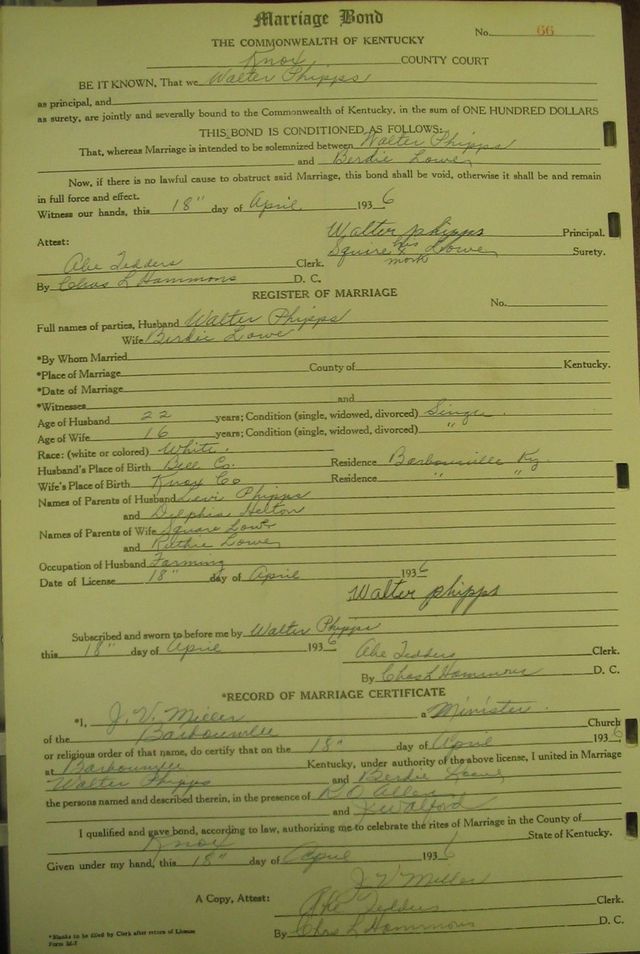 Marriage Bond
No. 66
THE COMMONWEALTH OF KENTUCKY
Knox COUNTY COURT
BE IT KNOWN, That we Walter Phipps
as principal, and
as surety, are jointly and severally bound to the Commonwealth of Kentucky, in the sum of ONE HUNDRED DOLLARS
THIS BOND IS CONDITIONED AS FOLLOWS:
That, whereas Marriage is intended to be solemnized between Walter Phipps
and Berdie Lowe
Now, if there is no lawful cause to obstruct said Marriage, this bond shall be void, otherwise it shall be and remain
in full force and effect.
Witness our hands, this 18" day of April 1936
Walter phipps Principal.
Attest: Squire his x mark Lowe Surety.
Abe Tedders Clerk.
By Chas L Hammons D. C.
REGISTER OF MARRIAGE
No.
Full names of parties, Husband Walter Phipps
Wife Berdie Lowe
*By Whom Married
*Place of Marriage County of Kentucky.
*Date of Marriage
*Witnesses and
Age of Husband 22 years; Condition (single, widowed, divorced) Single
Age of Wife 16 years; Condition (single, widowed, divorced) "
Race: (white or colored) White.
Husband's Place of Birth Bell Co. Residence Barbourville Ky.
Wife's Place of Birth Knox Co Residence " "
Names of Parents of Husband Levi Phipps
and Delphia Helton
Names of Parents of Wife Square Lowe
and Ruthie Lowe
Occupation of Husband Farming
Date of License 18" day of April 1936
Walter phipps
Subscribed and sworn to before me by Walter Phipps
this 18" day of April 1936
Abe Tedders Clerk.
By Chas L Hammons D. C.
*RECORD OF MARRIAGE CERTIFICATE
*I, J. V. Miller a Minister.
of the Barbourville Church
or religious order of that name, do certify that on the 18" day of April 1936
at Barbourville Kentucky, under authority of the above license, I united in Marriage
Walter Phipps and Berdie Lowe
the persons named and described therein, in the presence of R O Allen
and Walford
I qualified and gave bond, according to law, authorizing me to celebrate the rites of Marriage in the County of
Knox State of Kentucky.
Given under my hand, this 18" day of April 1936
J. V Miller
A Copy, Attest: Abe Tedders Clerk.
By Chas L Hammons D. C.
*Blanks to be filled by Clerk after return of License
Form M-7